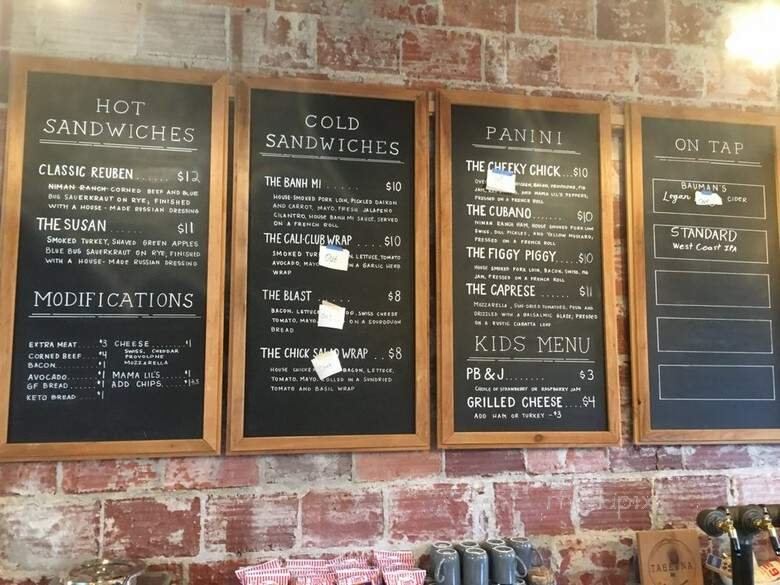 HOT
SANDWICHES
CLASSIC REUBEN...... $12
NIMAN RANCH CORNED BEEF AND BLUE
BUS SAUERKRAUT ON RYE, FINISHED
WITH A HOUSE-MADE RUSSIAN DRESSING
THE SUSAN ...... $11
SMOKED TURKEY, SHAVED GREEN APPLES
BLUE BUS SAUERKRAUT ON RYE, FINISHED
WITH A HOUSE-MADE RUSSIAN DRESSING
MODIFICATIONS
EXTRA MEAT......$3
CORNED BEEF....$4
BACON..........$1
AVOCADO........$1
GF BREAD.......$1
KETO BREAD.....$1
CHEESE........$1
SWISS, CHEDDAR
PROVOLONE
MOZZARELLA
MAMA LIL'S....$1
ADD CHIPS....
COLD
SANDWICHES
THE BANH MI ...... $10
HOUSE-SMOKED PORK LOIN, PICKLED DAIKON
AND CARROT, MAYO, FRESH JALAPENO
CILANTRO, HOUSE BANH MI SAUCE, SERVED
ON A FRENCH ROLL
THE CALI-CLUB WRAP ..$10
SMOKED TUR LETTUCE, TOMATO
AVOCADO, MAYO ON A GARLIC HERB
WRAP
Out
THE BLAST ...... $8
BACON, LETTUCE, SWISS CHEESE
TOMATO, MAYO ON A SOURDOUGH
BREAD
THE CHICK SALAD WRAP .. $8
HOUSE CHICKE BACON, LETTUCE,
TOMATO, MAYO, ROLLED IN A SUNDRIED
TOMATO AND BASIL WRAP
PANINI
THE CHEEKY CHICK...$10
CHICKEN, BACON, PROVOLONE, FIG
JAM, AND MAMA LIL'S PEPPERS,
PRESSED ON A FRENCH ROLL
THE CUBANO ...... $10
NIMAN RANCH HAM, HOUSE SMOKED PORK LOIN
SWISS, DILL PICKLES, AND YELLOW MUSTARD,
PRESSED ON A FRENCH ROLL
THE FIGGY PIGGY.....$10
HOUSE SMOKED PORK LOIN, BACON, SWISS, FIG
JAM, PRESSED ON A FRENCH ROLL
THE CAPRESE ...... $11
MOZZARELLA, SUN-DRIED TOMATOES, PESTO AND
DRIZZLED WITH A BALSAMIC GLAZE, PRESSED
ON A RUSTIC CIABATTA LOAF
KIDS MENU
PB & J.......... $3
CHOICE OF STRAWBERRY OR RASPBERRY JAM
GRILLED CHEESE....$4
ADD HAM OR TURKEY -$3
ON TAP
BAUMAN'S
Logan CIDER
STANDARD
West Coast IPA